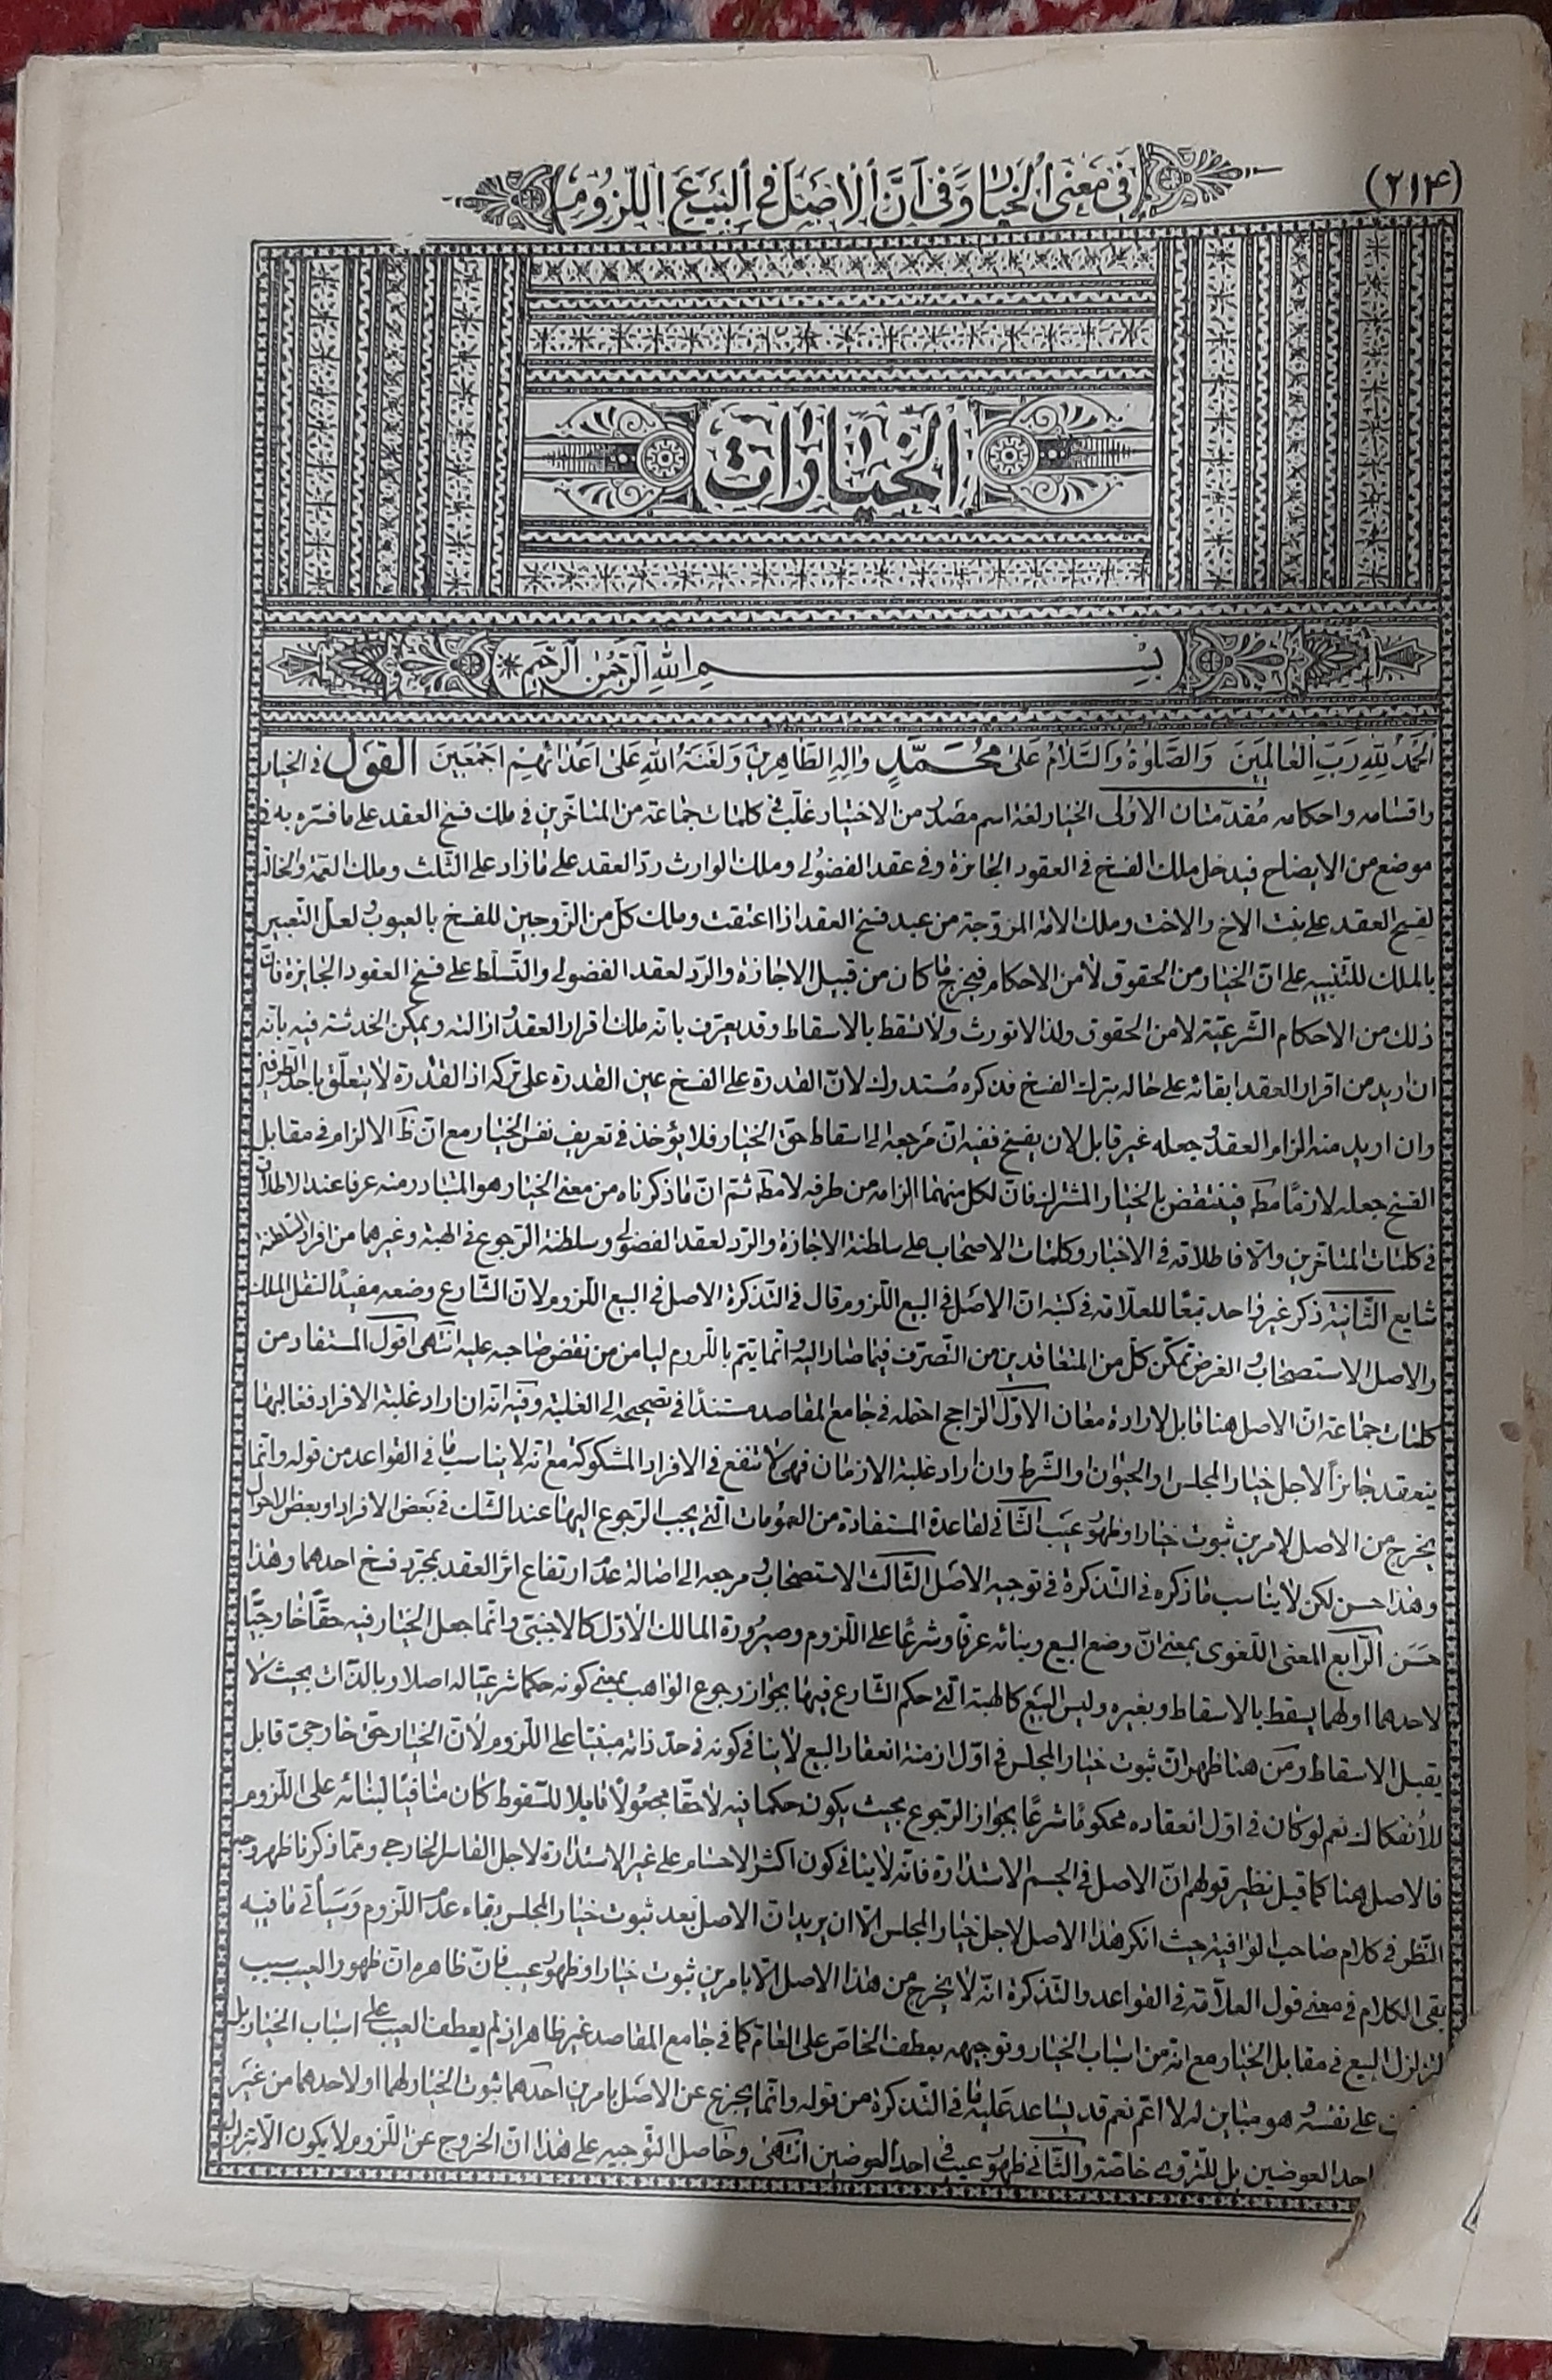 (٢١۴)
في معنى الخيار وفي أن الاصل في البيع اللزوم
الخيارات
بسم الله الرحمن الرحيم
الحمد لله رب العالمين والصلوة والسلام على محمد واله الطاهرين ولعنة الله على اعدائهم اجمعين القول في الخيار
واقسامه واحكامه مقدمتان الاولى الخيار لغة اسم مصدر من الاختيار غلب في كلمات جماعة من المتأخرين في ملك فسخ العقد على ما فسره به في
موضع من الايضاح فيدخل ملك الفسخ في العقود الجايزة وفي عقد الفضولي وملك الوارث رد العقد على ما زاد على الثلث وملك العمة والخالة
لفسخ العقد على بنت الاخ والاخت وملك الامة المزوجة من عبد فسخ العقد اذا اعتقت وملك كل من الزوجين للفسخ بالعيوب لعل التعبير
بالملك للتنبيه على ان الخيار من الحقوق لا من الاحكام فيخرج ما كان من قبيل الاجازة والرد لعقد الفضولي والتسلط على فسخ العقود الجايزة فان
ذلك من الاحكام الشرعية لا من الحقوق ولذا لا تورث ولا تسقط بالاسقاط وقد يعرف بانه ملك اقرار العقد و ازالته ويمكن الخدشة فيه بانه
ان اريد من اقرار العقد ابقائه على حاله بترك الفسخ فذكره مستدرك لان القدرة على الفسخ عين القدرة على تركه اذ القدرة لا يتعلق باحد الطرفين
وان اريد منه الزام العقد و جعله غير قابل لان يفسخ ففيه ان مرجعه الى اسقاط حق الخيار فلا يؤخذ في تعريف نفس الخيار مع ان ظ الالزام في مقابل
الفسخ جعله لازمًا مط فينتقض بالخيار المشترك فان لكل منهما الزامه من طرفه لا مط ثم ان ما ذكرناه من معنى الخيار هو المتبادر منه عرفا عند الاطلاق
في كلمات المتأخرين والا فاطلاقه في الاخبار وكلمات الاصحاب على سلطنة الاجازة والرد لعقد الفضولي وسلطنة الرجوع في الهبة وغيرهما من افراد السلطنة
شايع الثانية ذكر غير واحد تبعًا للعلامة في كتبه ان الاصل في البيع اللزوم قال في التذكرة الاصل في البيع اللزوم لان الشارع وضعه مفيدًا لنقل الملك
والاصل الاستصحاب و الغرض تمكن كل من المتعاقدين من التصرف فيما صار اليه و انما يتم باللزوم ليأمن من نقض صاحبه عليه انتهى اقول المستفاد من
كلمات جماعة ان الاصل هنا قابل لارادة معان الاول الراجح احتمله في جامع المقاصد مستندًا في تصحيحه الى الغلبة وفيه انه ان اراد غلبة الافراد فغالبها
ينعقد جائزًا لاجل خيار المجلس او الحيوان والشرط وان اراد غلبة الازمان فهي لا تنفع في الافراد المشكوكة مع انه لا يناسب ما في القواعد من قوله وانما
يخرج من الاصل لامرين ثبوت خيار او ظهور عيب الثاني القاعدة المستفادة من العمومات التي يجب الرجوع اليها عند الشك في بعض الافراد او بعض الاحوال
وهذا حسن لكن لا يناسب ما ذكره في التذكرة في توجيه الاصل الثالث الاستصحاب و مرجعه الى اصالة عدم ارتفاع اثر العقد بمجرد فسخ احدهما وهذا
حسن الرابع المعنى اللغوي بمعنى ان وضع البيع وبنائه عرفًا وشرعًا على اللزوم وصيرورة المالك الاول كالاجنبي وانما جعل الخيار فيه حقًا خارجيًا
لاحدهما او لهما يسقط بالاسقاط وبغيره وليس البيع كالهبة التي حكم الشارع فيها بجواز رجوع الواهب بمعنى كونه حكما شرعيًا له اصلا وبالذات بحيث لا
يقبل الاسقاط ومن هنا ظهر ان ثبوت خيار المجلس في اول ازمنة انعقاد البيع لا ينافي كونه في حد ذاته مبنيًا على اللزوم لان الخيار حق خارجي قابل
للأنفكاك نعم لو كان في اول انعقاده محكومًا شرعًا بجواز الرجوع بحيث يكون حكما فيه لا حقًا مجعولًا قابلا للسقوط كان منافيًا لبنائه على اللزوم
فالاصل هنا كما قيل نظير قولهم ان الاصل في الجسم الاستدارة فانه لا ينافي كون اكثر الاجسام على غير الاستدارة لاجل القاسر الخارجي ومما ذكرنا ظهر وجه
النظر في كلام صاحب الوافية حيث انكر هذا الاصل لاجل خيار المجلس الا ان يريد ان الاصل بعد ثبوت خيار المجلس بقاء عدم اللزوم وسيأتي ما فيه
بقى الكلام في معنى قول العلامة في القواعد والتذكرة انه لا يخرج من هذا الاصل الا بامرين ثبوت خيار او ظهور عيب فان ظاهره ان ظهور العيب سبب
لتزلزل البيع في مقابل الخيار مع انه من اسباب الخيار وتوجيهه بعطف الخاص على العام كما في جامع المقاصد غير ظاهر اذ لم يعطف العيب على اسباب الخيار بل
على نفسه و هو مباين له لا اعم نعم قد يساعد عليه ما في التذكرة من قوله وانما يخرج عن الاصل بامرين احدهما ثبوت الخيار لهما او لاحدهما من غير
احد العوضين بل للتروي خاصة والثاني ظهور عيب في احد العوضين انتهى وحاصل التوجيه على هذا ان الخروج عن اللزوم لا يكون الا بتزلزل